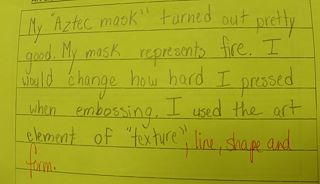 My "Aztec mask" turned out pretty
good. My mask represents fire. I
would change how hard I pressed
when embossing. I used the art
element of "texture", line, shape and
form.